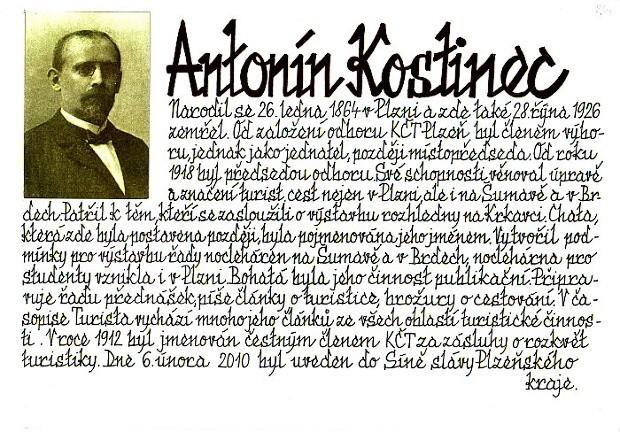 Antonín Kostinec
Narodil se 26. ledna 1864 v Plzni a zde také 28. října 1926
zemřel. Od založení odboru KČT Plzeň byl členem výbo-
ru, jednak jako jednatel, později místopředseda. Od roku
1918 byl předsedou odboru. Své schopnosti věnoval úpravě
a značení turist. cest nejen v Plzni, ale i na Šumavě a v Br-
dech. Patřil k těm, kteří se zasloužili o výstavbu rozhledny na Krkavci. Chata,
která zde byla postavena později, byla pojmenována jeho jménem. Vytvořil pod-
mínky pro výstavbu řady nocleháren na Šumavě a v Brdech, noclehárna pro
studenty vznikla i v Plzni. Bohatá byla jeho činnost publikační. Připra-
vuje řadu přednášek, píše články o turistice, brožury o cestování. V ča-
sopise Turista vychází mnoho jeho článků ze všech oblastí turistické činnos-
ti. V roce 1912 byl jmenován čestným členem KČT za zásluhy o rozkvět
turistiky. Dne 6. února 2010 byl uveden do Síně slávy Plzeňského
kraje.